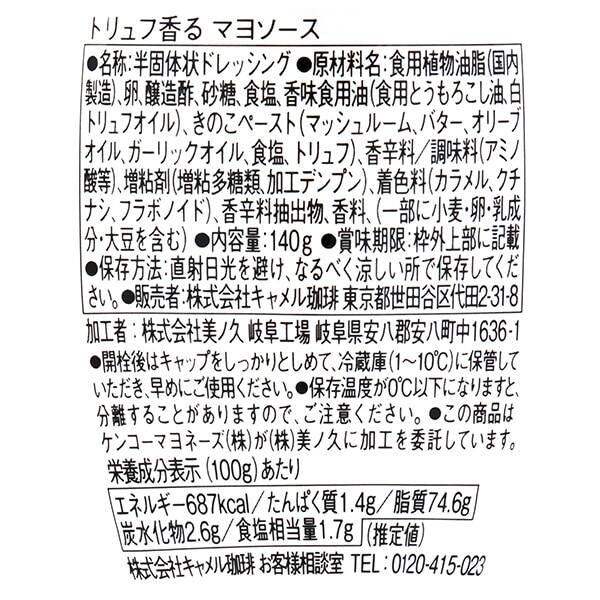 トリュフ香る マヨソース
●名称:半固体状ドレッシング ●原材料名:食用植物油脂(国内
製造)、卵、醸造酢、砂糖、食塩、香味食用油(食用とうもろこし油、白
トリュフオイル)、きのこペースト(マッシュルーム、バター、オリーブ
オイル、ガーリックオイル、食塩、トリュフ)、香辛料／調味料(アミノ
酸等)、増粘剤(増粘多糖類、加工デンプン)、着色料(カラメル、クチ
ナシ、フラボノイド)、香辛料抽出物、香料、(一部に小麦・卵・乳成
分・大豆を含む) ●内容量:140g ●賞味期限:枠外上部に記載
●保存方法:直射日光を避け、なるべく涼しい所で保存してくだ
さい。●販売者:株式会社キャメル珈琲 東京都世田谷区代田2-31-8
加工者：株式会社美ノ久 岐阜工場 岐阜県安八郡安八町中1636-1
●開栓後はキャップをしっかりとしめて、冷蔵庫(1~10℃)に保管して
いただき、早めにご使用ください。●保存温度が0℃以下になりますと、
分離することがありますので、ご注意ください。 ●この商品は
ケンコーマヨネーズ(株)が(株)美ノ久に加工を委託しています。
栄養成分表示 (100g)あたり
エネルギー687kcal／たんぱく質1.4g／脂質74.6g
炭水化物2.6g／食塩相当量1.7g (推定値)
株式会社キャメル珈琲 お客様相談室 TEL：0120-415-023